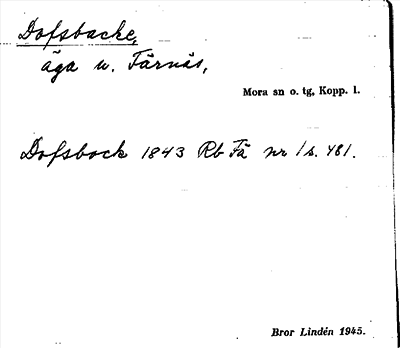 Dofsbacke,
äga u. Färnäs,
Mora sn o. tg, Kopp. l.
Dofsback 1843 Rb Fä nr 1 s. 481.
Bror Lindén 1945.